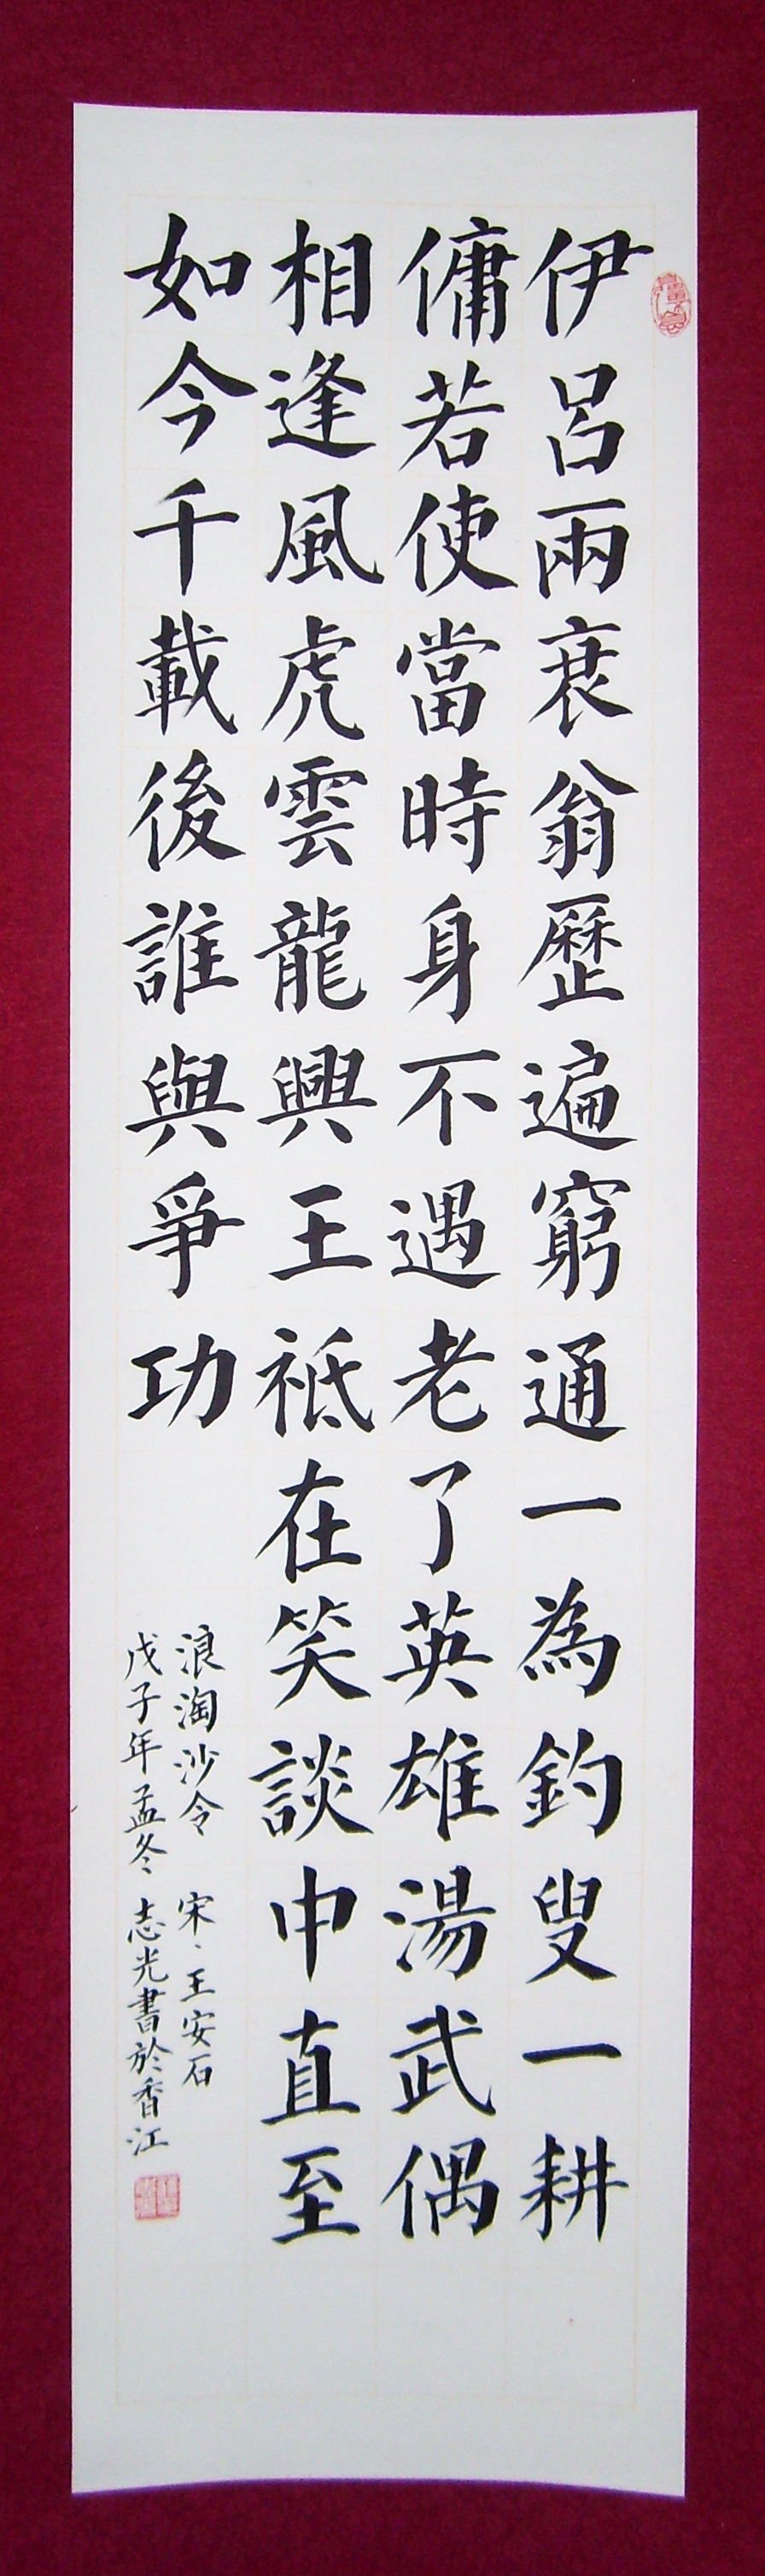 伊呂兩衰翁歷遍窮通一為釣叟一耕
傭若使當時身不遇老了英雄湯武偶
相逢風虎雲龍興王祗在笑談中直至
如今千載後誰與爭功
浪淘沙令 宋、王安石
戊子年孟冬 志光書於香江